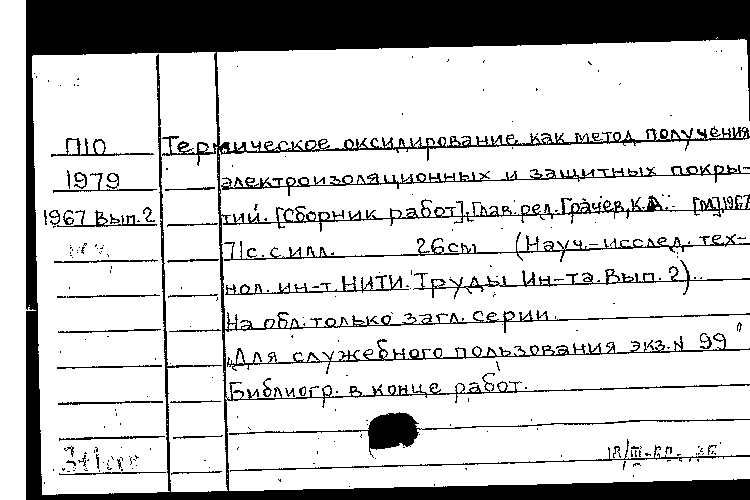 П10 Термическое оксидирование как метод получения
1979 электроизоляционных и защитных покры-
1967 Вып.2 тий. [Сборник работ]. Глав. ред. Грачев, К.А. [М] 1967
71с. с илл. 26см (Науч.-исслед. тех-
нол. ин-т. НИТИ. Труды Ин-та. Вып. 2).
На обл. только загл. серии.
„Для служебного пользования экз. N 99"
Библиогр. в конце работ.